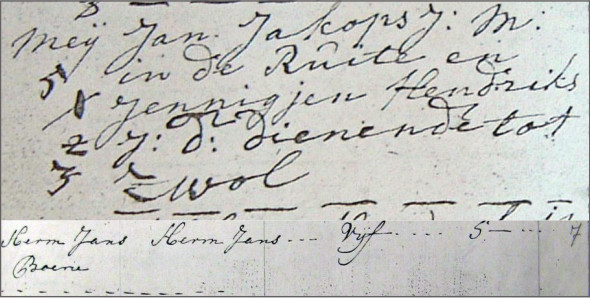 Meÿ Jan Jakops J: M:
5 in de Rûite en
X Jennigjen Hendriks
2 J: D: dienende tot
3 Zwol
Herm Jans Herm Jans ... Vÿf .... 5 — ... 7
Boerie